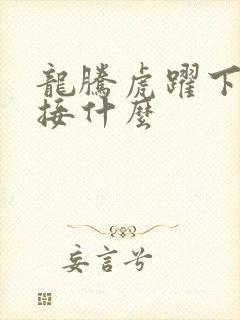 龍騰虎躍下
接什麼
妄言兮